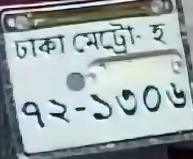 ঢাকা মেট্রো- হ
৭২-১৩০৬